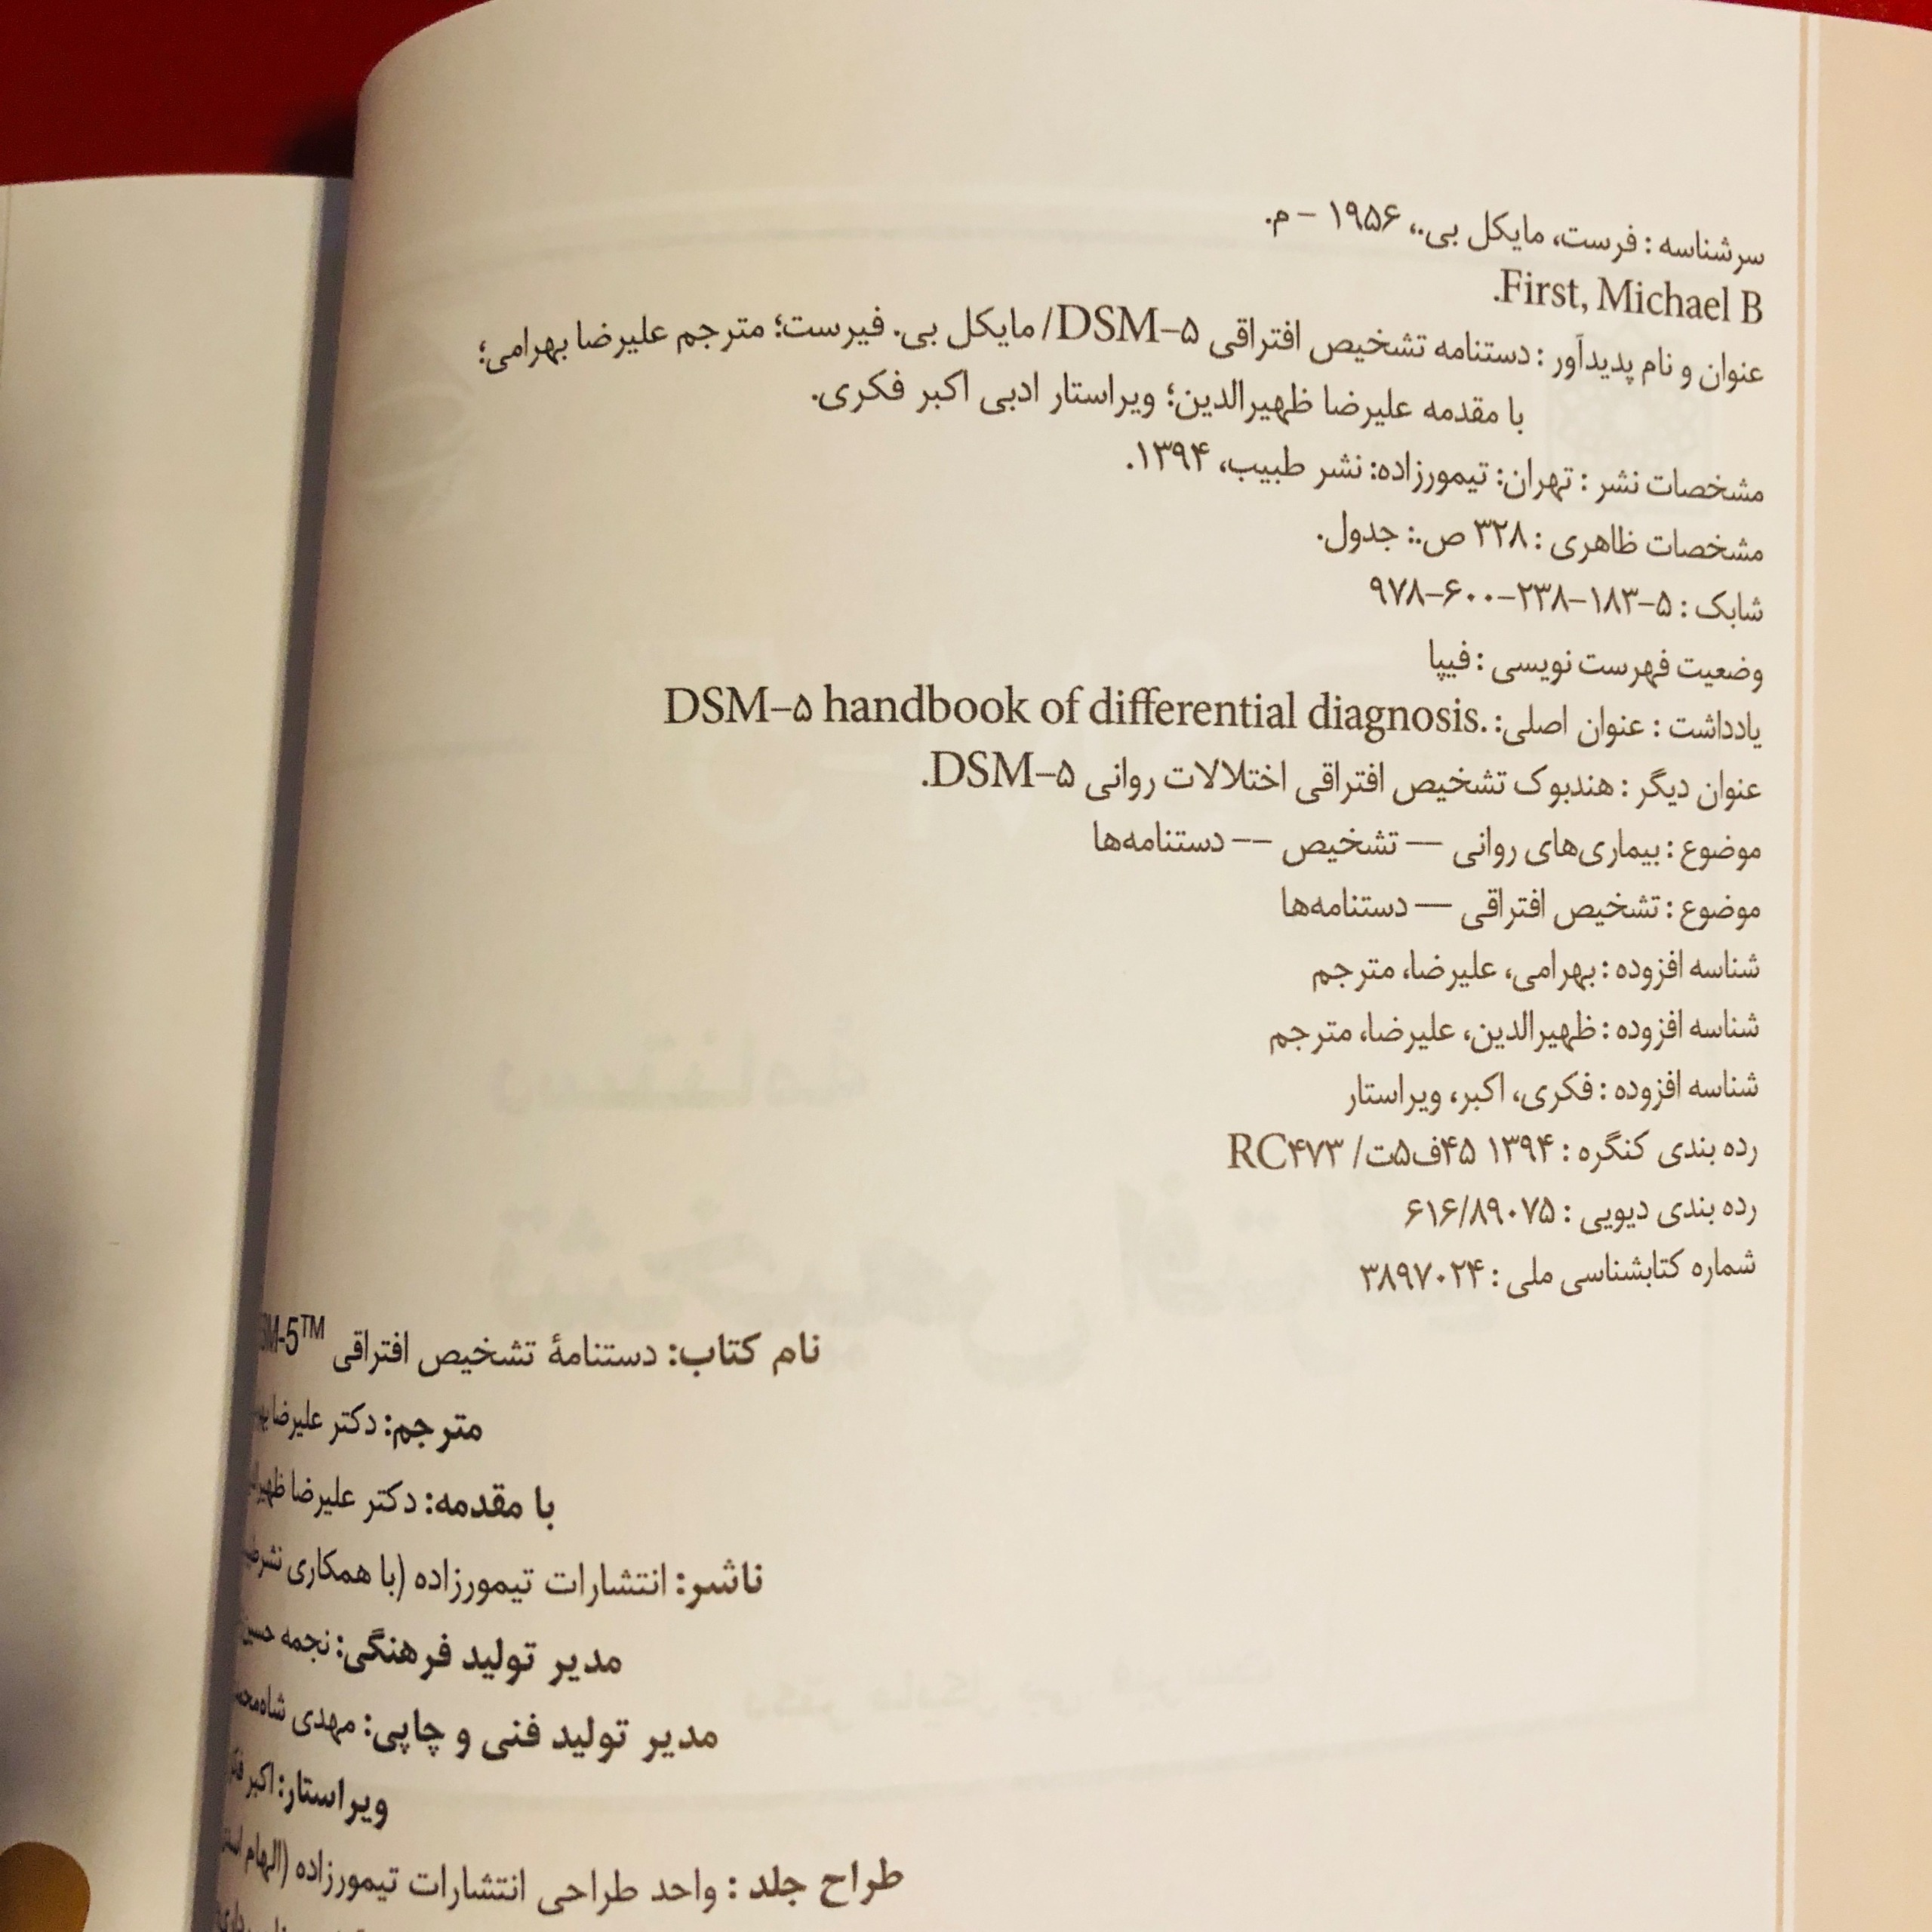 سرشناسه : فرست، مایکل بی.، ۱۹۵۶ – م.
First, Michael B.
عنوان و نام پدیدآور : دستنامه تشخیص افتراقی DSM–۵/ مایکل بی. فیرست؛ مترجم علیرضا بهرامی؛
با مقدمه علیرضا ظهیرالدین؛ ویراستار ادبی اکبر فکری.
مشخصات نشر : تهران: تیمورزاده: نشر طبیب، ۱۳۹۴.
مشخصات ظاهری : ۳۲۸ ص.: جدول.
شابک : ۹۷۸–۶۰۰–۲۳۸–۱۸۳–۵
وضعیت فهرست نویسی : فیپا
یادداشت : عنوان اصلی: DSM–۵ handbook of differential diagnosis.
عنوان دیگر : هندبوک تشخیص افتراقی اختلالات روانی DSM–۵.
موضوع : بیماری‌های روانی — تشخیص –– دستنامه‌ها
موضوع : تشخیص افتراقی — دستنامه‌ها
شناسه افزوده : بهرامی، علیرضا، مترجم
شناسه افزوده : ظهیرالدین، علیرضا، مترجم
شناسه افزوده : فکری، اکبر، ویراستار
رده بندی کنگره : ۱۳۹۴ ۴۵ف۵ت/ RC۴۷۳
رده بندی دیویی : ۶۱۶/۸۹۰۷۵
شماره کتابشناسی ملی : ۳۸۹۷۰۲۴
نام کتاب: دستنامهٔ تشخیص افتراقی
مترجم: دکتر علیرضا
با مقدمه: دکتر علیرضا
ناشر: انتشارات تیمورزاده (با همکاری
مدیر تولید فرهنگی: نجمه
مدیر تولید فنی و چاپی: مهدی
ویراستار: اکبر
طراح جلد : واحد طراحی انتشارات تیمورزاده (الهام